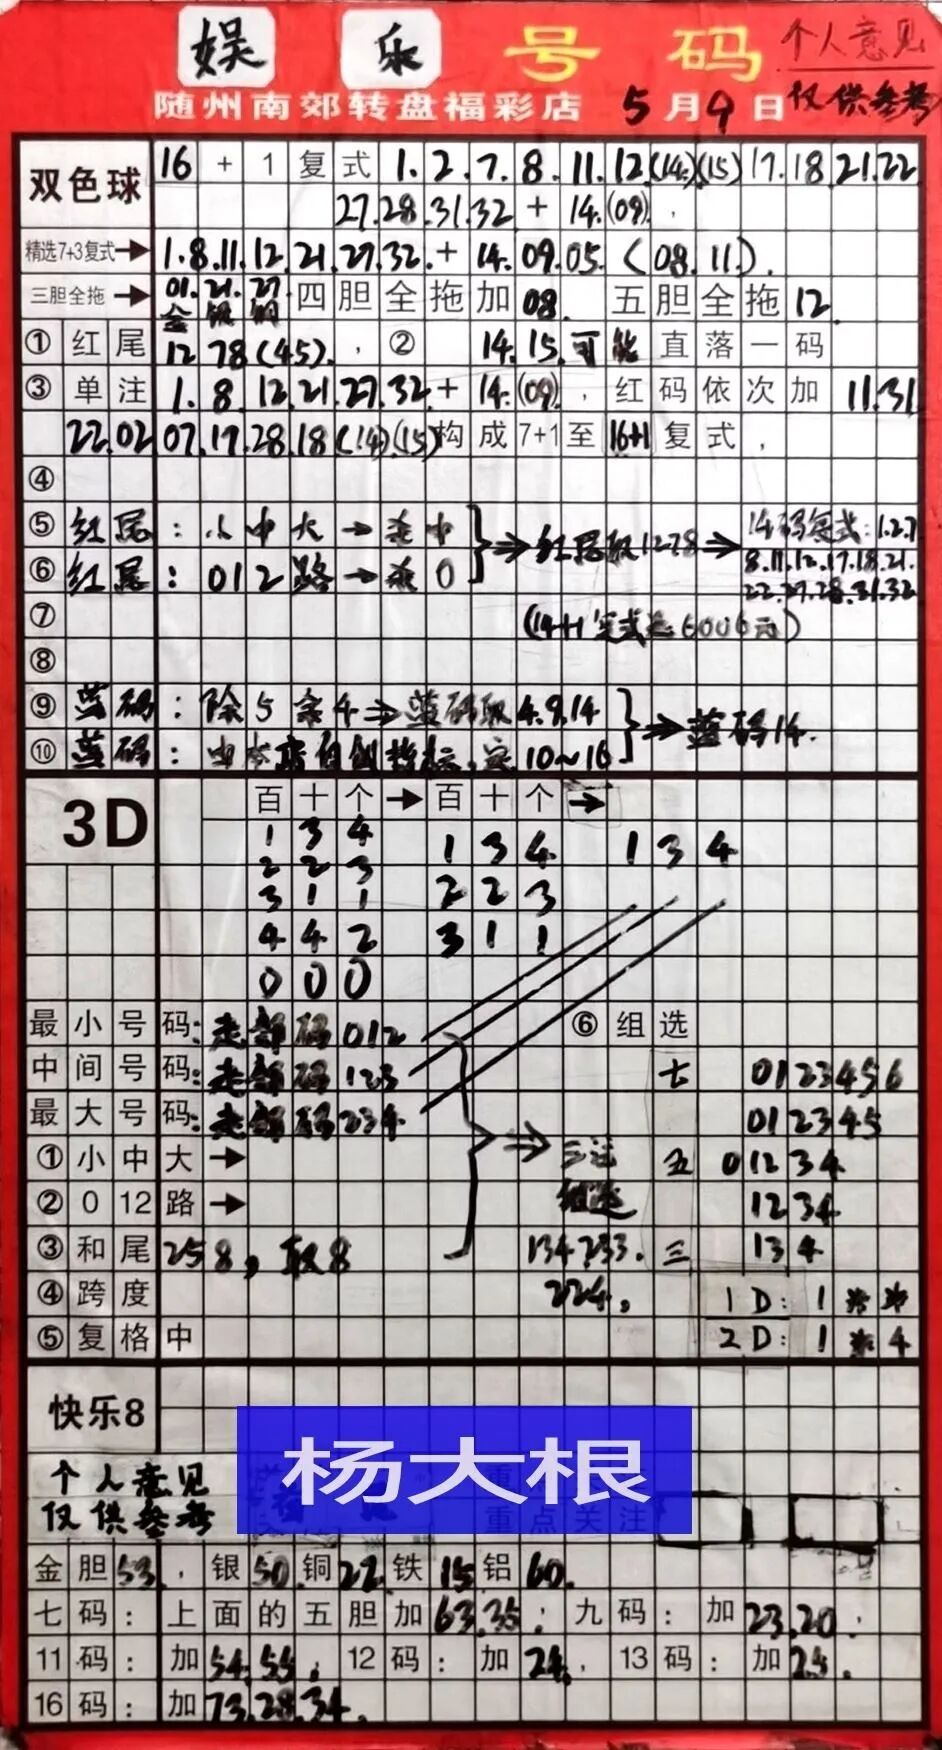 娱乐号码 个人意见
随州南郊转盘福彩店 5月9日 仅供参考
双色球 16+1复式 1.2.7.8.11.12.(14)(15)17.18.21.22
27.28.31.32+14.(09).
精选7+3复式→ 1.8.11.12.21.27.32.+14.09.05.(08.11).
三胆全拖→ 01.21.27 四胆全拖加08. 五胆全拖12.
金 银 铜
①红尾 12 78(45)., ② 14.15.可能直落一码
③单注 1.8.12.21.27.32.+14.(09),红码依次加11.31
22.02 07.17.28.18(14)(15)构成7+1至16+1复式,
④
⑤红尾:小中大→杀中
⑥红尾:012路→杀0
⇒红尾取1278⇒14码复式:1.2.7
8.11.12.17.18.21.
22.27.28.31.32
⑦ (14+1复式 6006元)
⑧
⑨蓝码:除5余4⇒蓝码取4.9.14
⑩蓝码:由本店自创指标,定10~16
⇒蓝码14.
3D 百十个→百十个→
1 3 4 1 3 4 1 3 4
2 2 3 2 2 3
3 1 1 3 1 1
4 4 2
0 0 0
最小号码:走势码012 ⑥组选
中间号码:走势码123 七 0123456
最大号码:走势码234 012345
①小中大→ ⇒三注 五 01234
②012路→ 组选 1234
③和尾258,取8 134.233. 三 134
④跨度 224. 1D:1**
⑤复格中 2D:1*4
快乐8
杨大根
个人意见
仅供参考 重点关注
金胆53.,银50.铜22.铁15铝60.
七码:上面的五胆加63.35;九码:加23.20,
11码:加54.55;12码:加24.,13码:加25.
16码:加73.28.34.